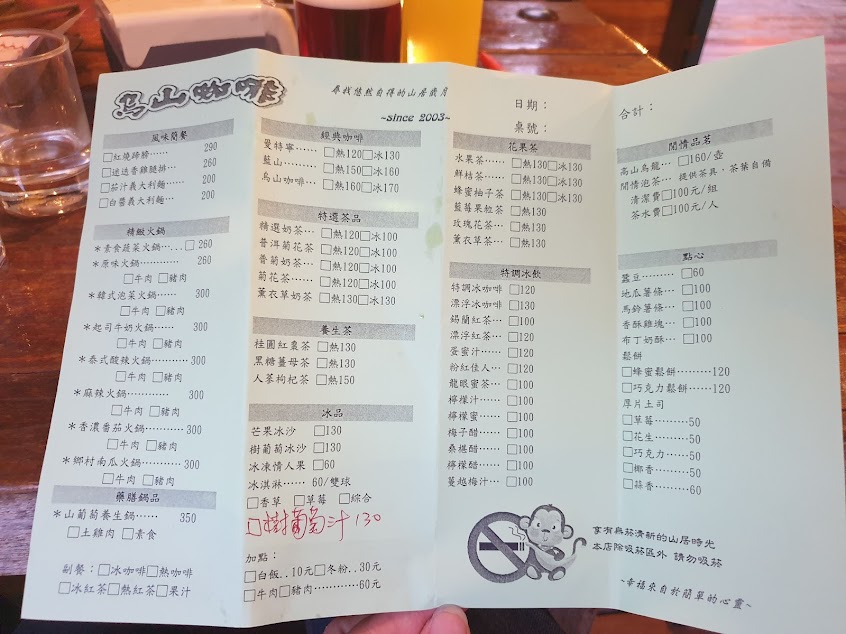 鳥山咖啡
尋找悠然自得的山居歲月
~since 2003~
風味簡餐
□紅燒蹄膀…… 290
□迷迭香雞腿排… 260
□茄汁義大利麵… 200
□白醬義大利麵… 200
精緻火鍋
＊素食蔬菜火鍋‥…□ 260
＊原味火鍋………… 260
□牛肉 □豬肉
＊韓式泡菜火鍋…… 300
□牛肉 □豬肉
＊起司牛奶火鍋…… 300
□牛肉 □豬肉
＊泰式酸辣火鍋………… 300
□牛肉 □豬肉
＊麻辣火鍋………… 300
□牛肉 □豬肉
＊香濃番茄火鍋………… 300
□牛肉 □豬肉
＊鄉村南瓜火鍋………… 300
□牛肉 □豬肉
藥膳鍋品
＊山葡萄養生鍋…… 350
□土雞肉 □素食
副餐：□冰咖啡□熱咖啡
□冰紅茶□熱紅茶□果汁
經典咖啡
曼特寧……□熱120□冰130
藍山………□熱150□冰160
鳥山咖啡… □熱160□冰170
特選茶品
精選奶茶… □熱120□冰100
普洱菊花茶 □熱120□冰100
普菊奶茶… □熱120□冰100
菊花茶…… □熱120□冰100
薰衣草奶茶 □熱130□冰130
養生茶
桂圓紅棗茶 □熱130
黑糖薑母茶 □熱130
人蔘枸杞茶 □熱150
冰品
芒果冰沙 □130
樹葡萄冰沙 □130
冰凍情人果 □60
冰淇淋…… 60/雙球
□香草 □草莓 □綜合
□樹葡萄汁 130
加點：
□白飯‥10元□冬粉‥30元
□牛肉□豬肉…………60元
日期：
桌號：
花果茶
水果茶…… □熱130□冰130
鮮桔茶…… □熱130□冰130
蜂蜜柚子茶 □熱130□冰130
藍莓果粒茶 □熱130
玫瑰花茶… □熱130
薰衣草茶… □熱130
特調冰飲
特調冰咖啡 □120
漂浮冰咖啡 □130
錫蘭紅茶… □100
漂浮紅茶… □120
蛋蜜汁…… □120
粉紅佳人… □120
龍眼蜜茶… □100
檸檬汁…… □100
檸檬蜜…… □100
梅子醋…… □100
桑椹醋…… □100
檸檬醋…… □100
蔓越梅汁… □100
合計：
閒情品茗
高山烏龍… □160/壺
閒情泡茶… 提供茶具，茶葉自備
清潔費□100元/組
茶水費□100元/人
點心
蠶豆……… □60
地瓜薯條… □100
馬鈴薯條… □100
香酥雞塊… □100
布丁奶酥… □100
鬆餅
□蜂蜜鬆餅………120
□巧克力鬆餅……120
厚片土司
□草莓………50
□花生………50
□巧克力……50
□椰香………50
□蒜香………60
享有無菸清新的山居時光
本店除吸菸區外 請勿吸菸
~幸福來自於簡單的心靈~